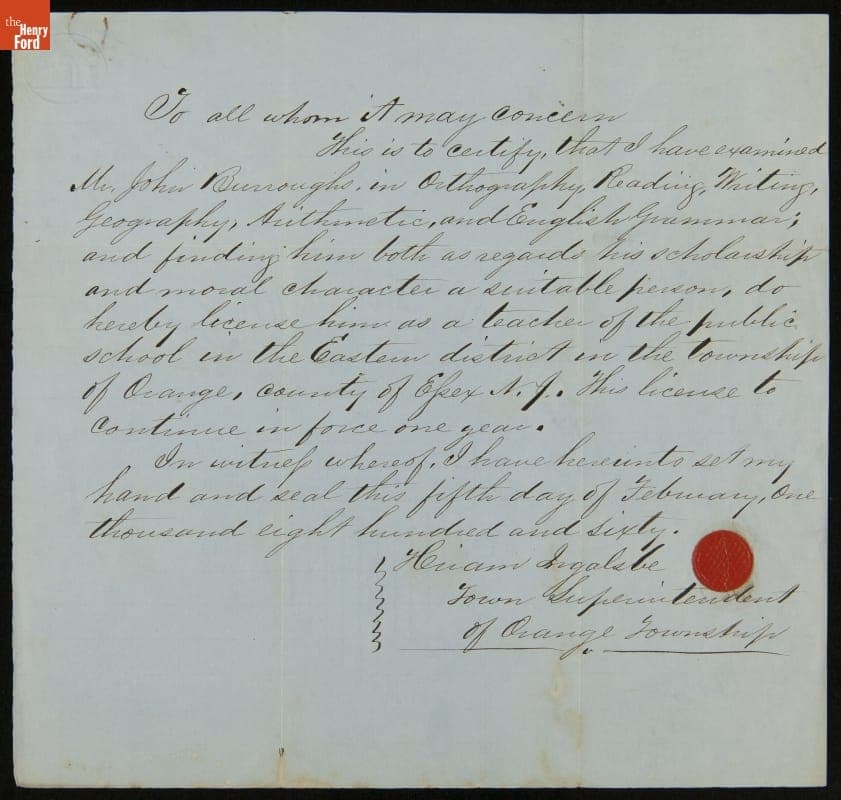 the
Henry
Ford
To all whom it may concern
This is to certify, that I have examined
Mr. John Burroughs, in Orthography, Reading, Writing,
Geography, Arithmetic, and English Grammar;
and finding him both as regards his scholarship
and moral character a suitable person, do
hereby license him as a teacher of the public
school in the Eastern district in the township
of Orange, county of Essex N. J. This license to
continue in force one year.
In witness whereof, I have hereunto set my
hand and seal this fifth day of February, one
thousand eight hundred and sixty.
Hiram Ingalsbe
Town Superintendent
of Orange Township